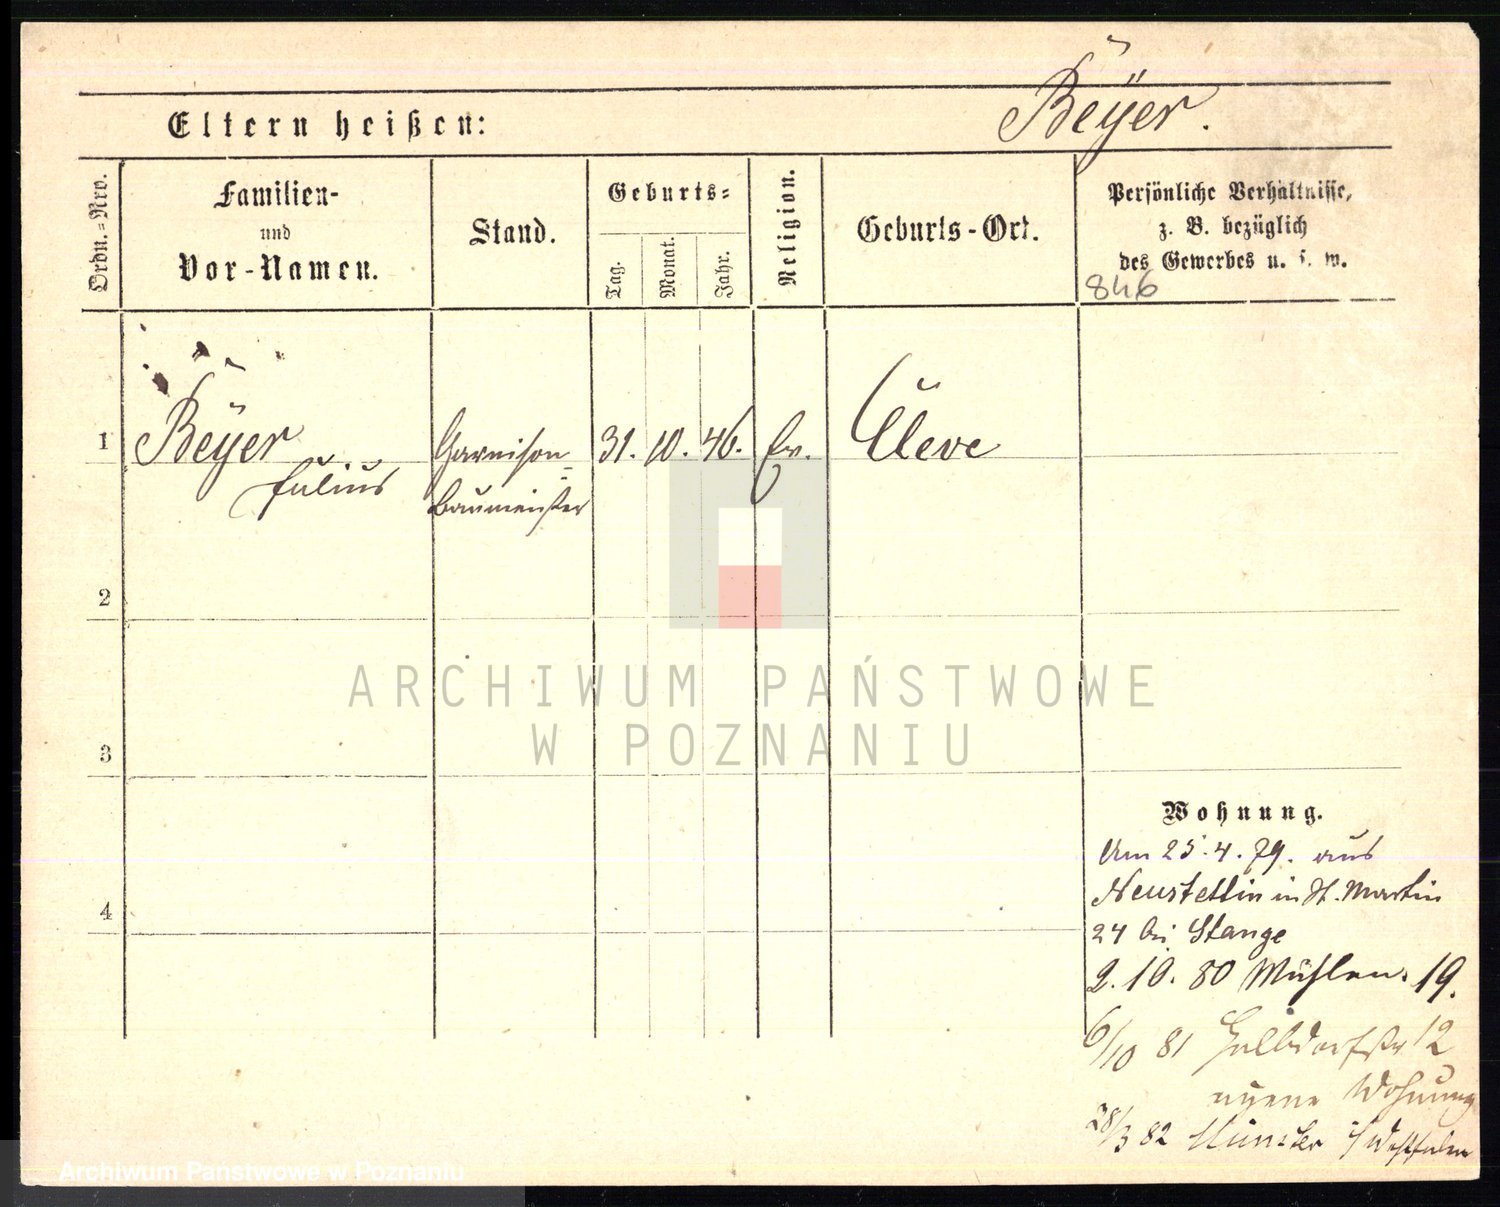 Beÿer.
Eltern heißen:
Ordn.-Nro.
Familien-
und
Vor-Namen.
Stand.
Geburts-
Tag.
Monat.
Jahr.
Religion.
Geburts-Ort.
Persönliche Verhältnisse,
z. B. bezüglich
des Gewerbes u. s. w.
846
1
Beÿer
Julius
Garnison-
Baumeister
31.
10.
46.
Ev.
Cleve
2
3
4
Wohnung.
Am 25.4.79. aus
Neustettin in St. Martin
24 bei Stange
2.10.80 Mühlen. 19.
6/10 81 Halbdorfstr 12
eigene Wohnung
28/3 82 Münster i/Westfalen
ARCHIWUM PAŃSTWOWE
W POZNANIU
Archiwum Państwowe w Poznaniu